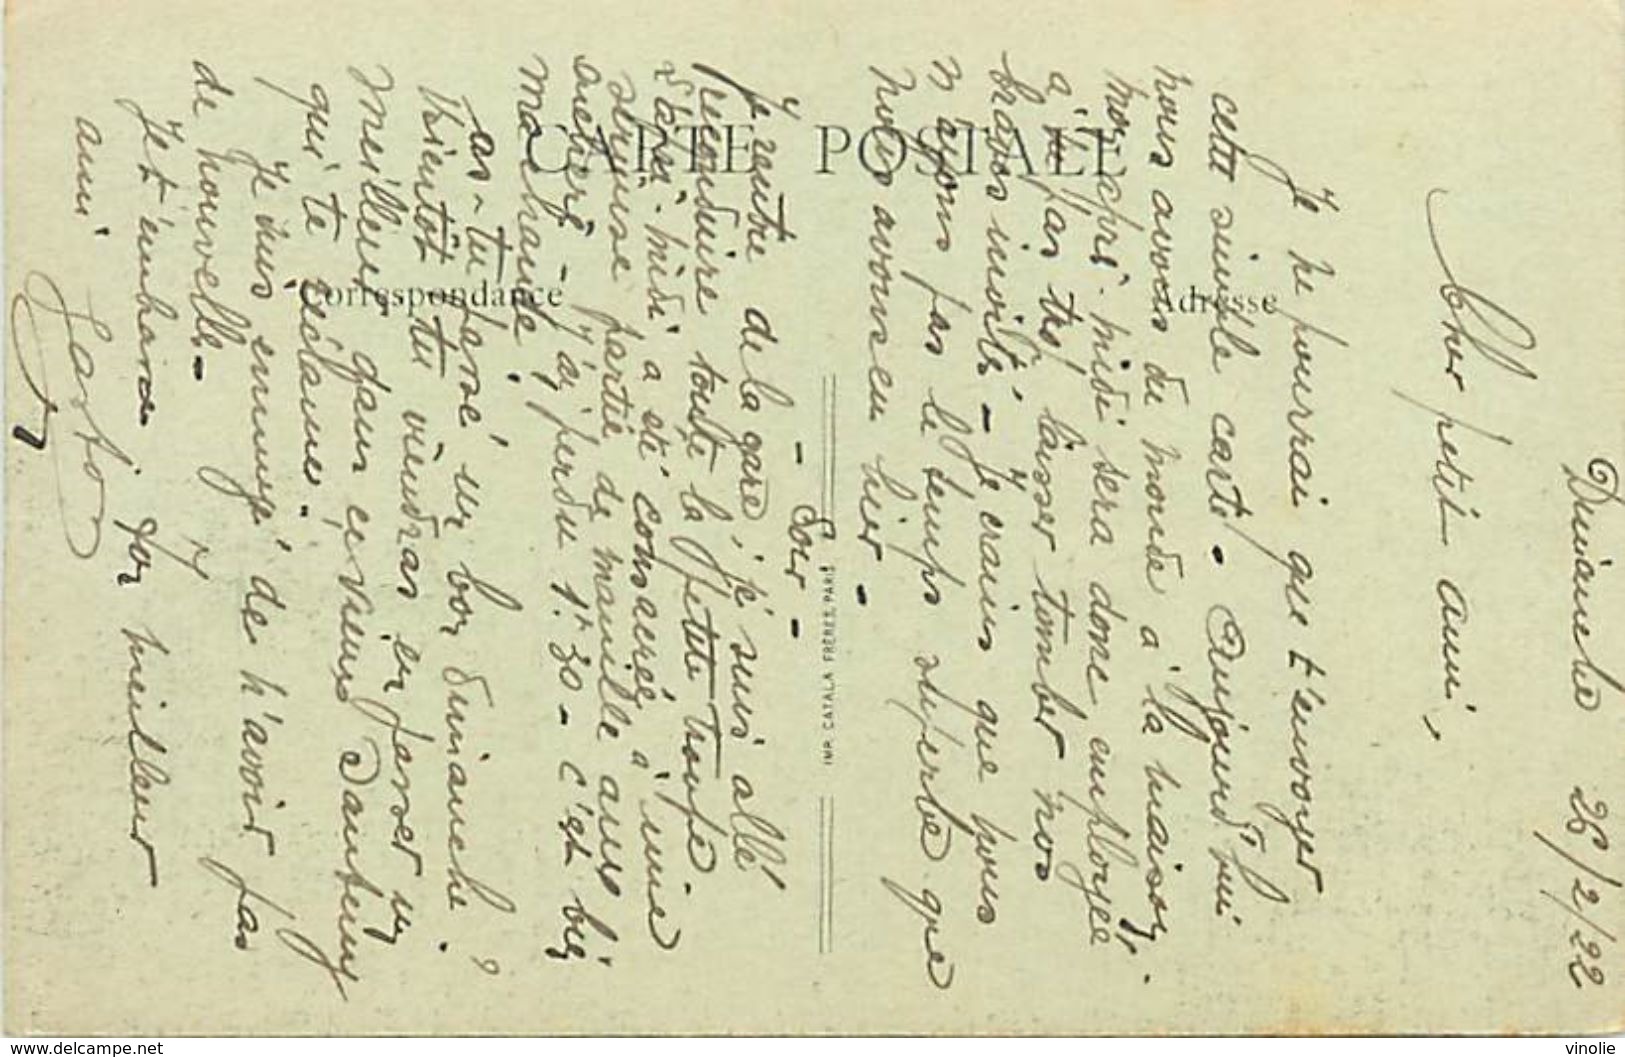 Dimanche 26/2/22
Cher petit ami,
Je ne pourrai que t'envoyer
cette simple carte. Aujourd'hui
nous avons du monde à la maison.
Mon après-midi sera donc employée
à ne pas trop laisser tomber nos
braves invités – Je crains que nous
n'ayons pas le temps superbe que
nous avons eu hier –
– Soir –
Je rentre de la gare, je suis allé
reconduire toute la petite troupe
L'après-midi a été consacrée à une
sérieuse partie de manille aux
enchères – J'ai perdu 1f 30 – c'est bien
ma chance !
as-tu passé un bon dimanche ?
Bientôt tu viendras en passer un
meilleur dans ce vieux
qui te réclame.
Je suis ennuyé de n'avoir pas
de nouvelles –
Je t'embrasse, ton meilleur
ami
Gaston
CARTE POSTALE
Correspondance
Adresse
IMP. CATALA FRERES PARIS
www.delcampe.net
vinolie